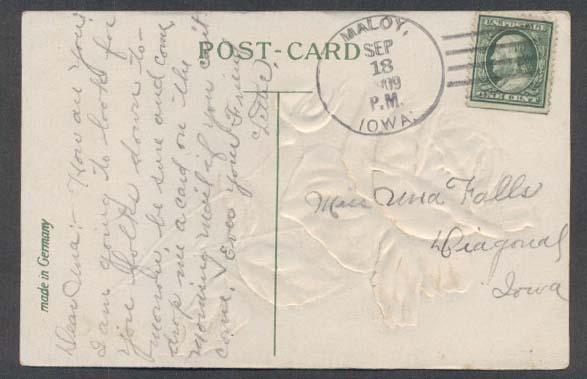 POST-CARD
MALOY,
SEP
18
1909
P.M.
IOWA.
U.S. POSTAGE
made in Germany
Dear Una:- How are you
I am going to look for
you folks down to-
morrow, be sure and come,
drop me a card on the
morning mail if you can't
come. Ever your Friend
Miss Una Falls
Diagonal
Iowa